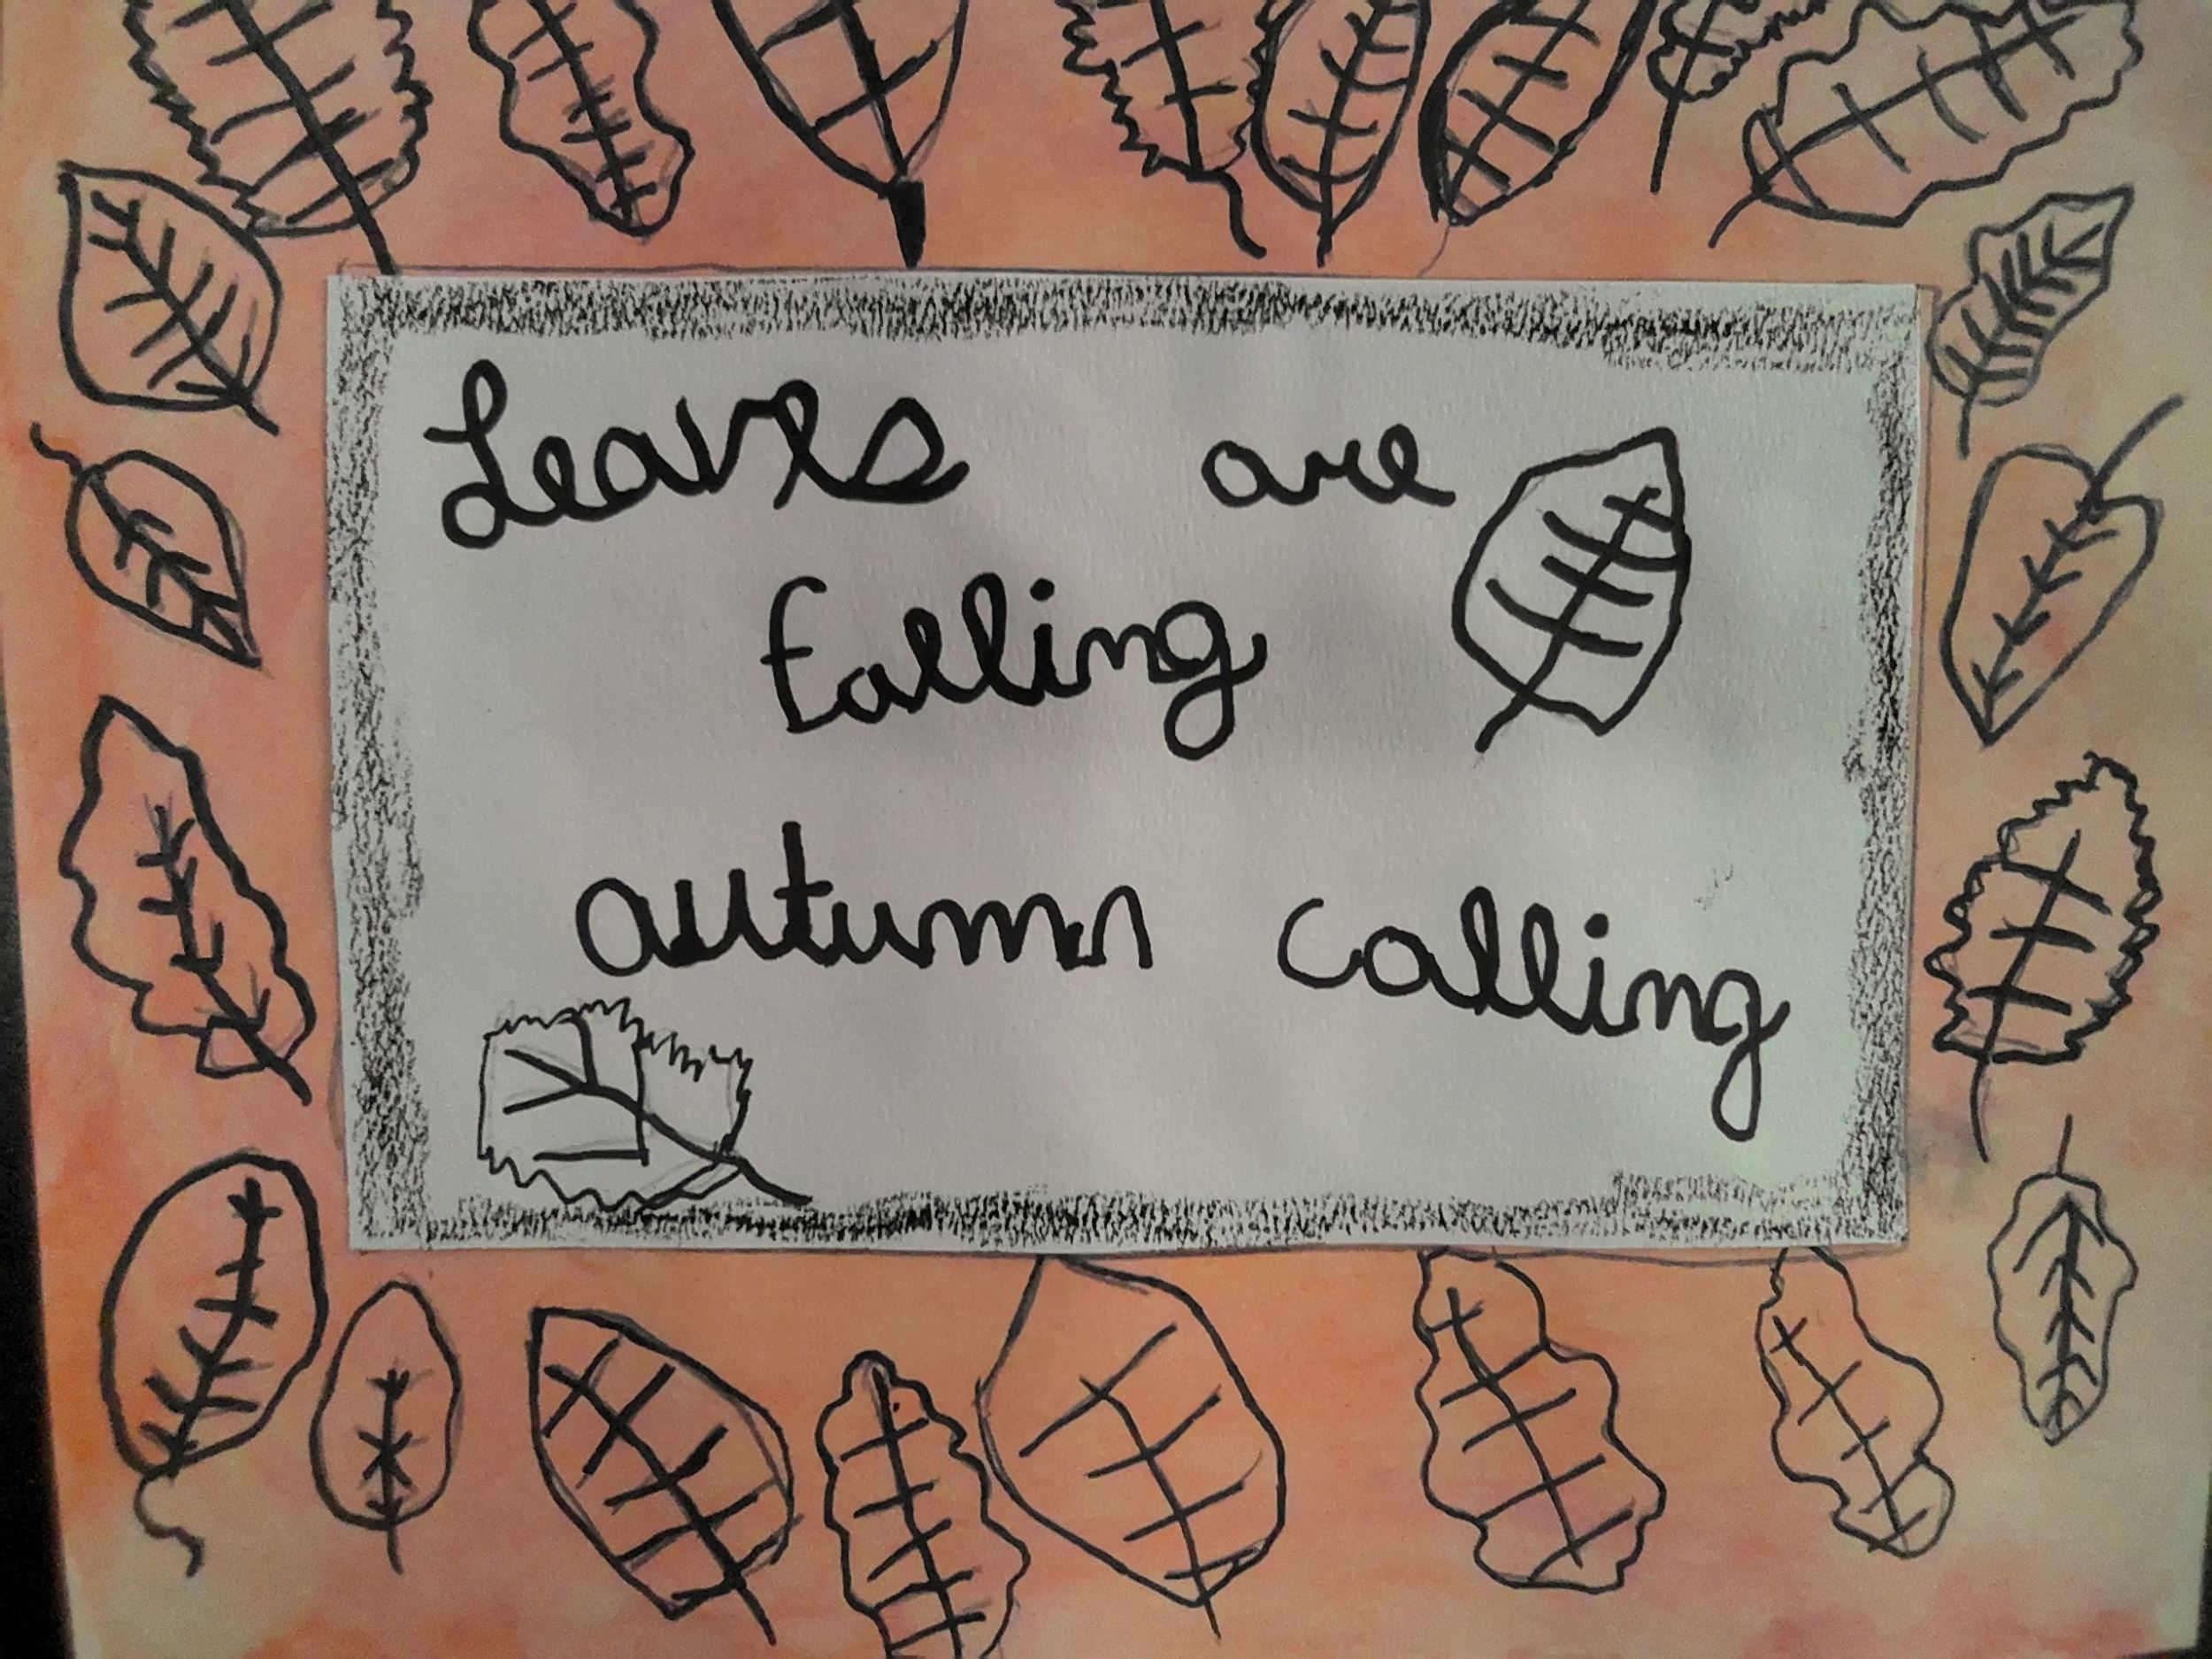 Leaves are
falling
autumn calling